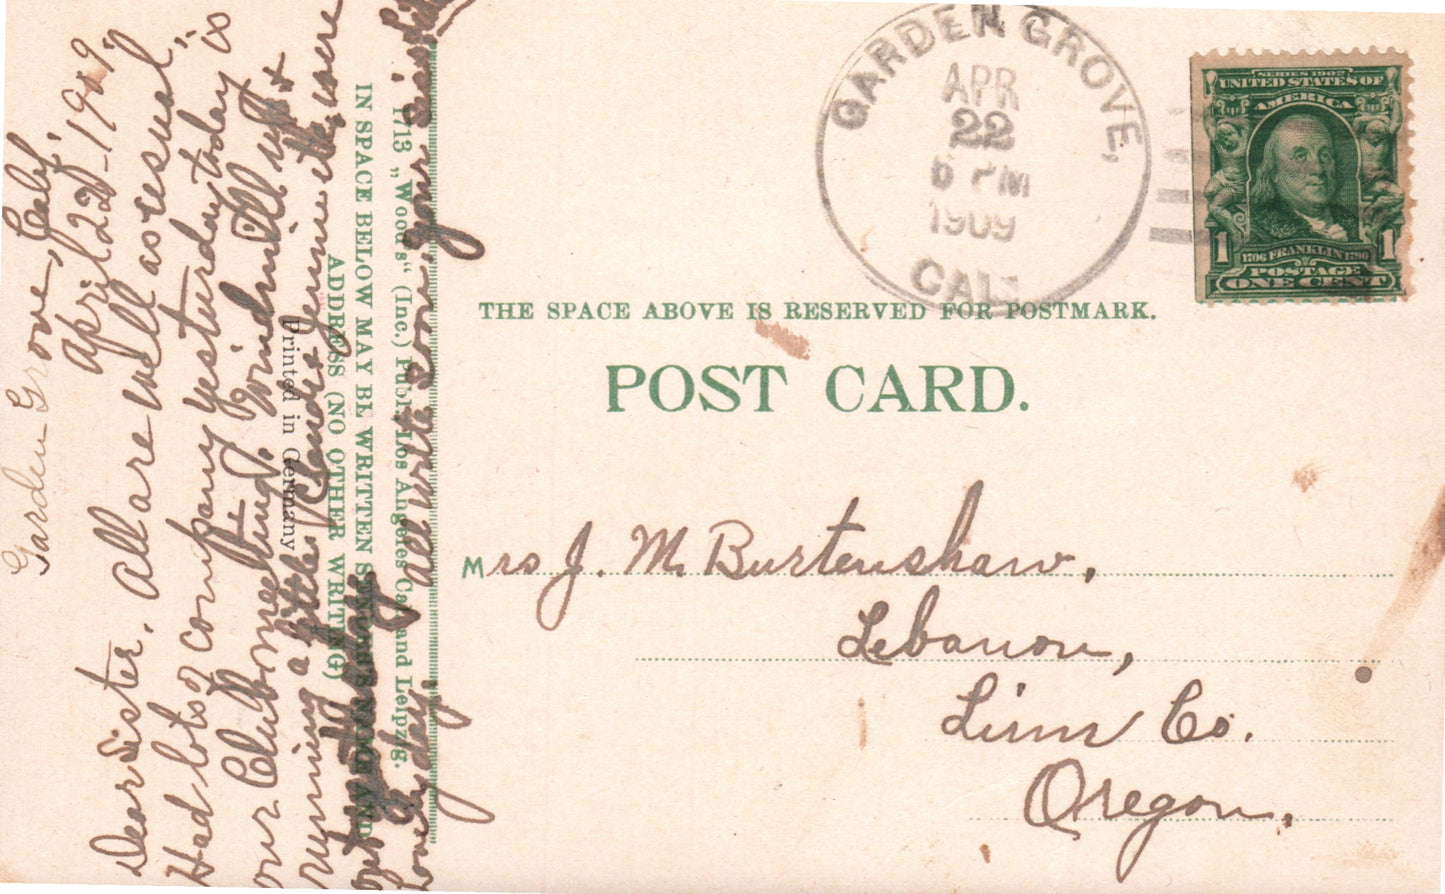 GARDEN GROVE,
APR
22
6 PM
1909
CAL.
SERIES 1902
UNITED STATES OF
AMERICA
1 1
1706 FRANKLIN 1790
POSTAGE
ONE CENT
THE SPACE ABOVE IS RESERVED FOR POSTMARK.
POST CARD.
Mrs J. M. Burtenshaw,
Lebanon,
Linn Co.
Oregon.
Garden Grove, Calif,
April 22-1909,
Dear Sister. All are well as usual,
Had lots of company yesturday today is
our Club meeting. Windmill up +
running a little. Claude + Jennie were
out
lovely day. all write soon, your sister
1713 „Woods“ (Inc.) Publ. Los Angeles Cal. and Leipzg.
IN SPACE BELOW MAY BE WRITTEN AND
ADDRESS (NO OTHER WRITING)
Printed in Germany